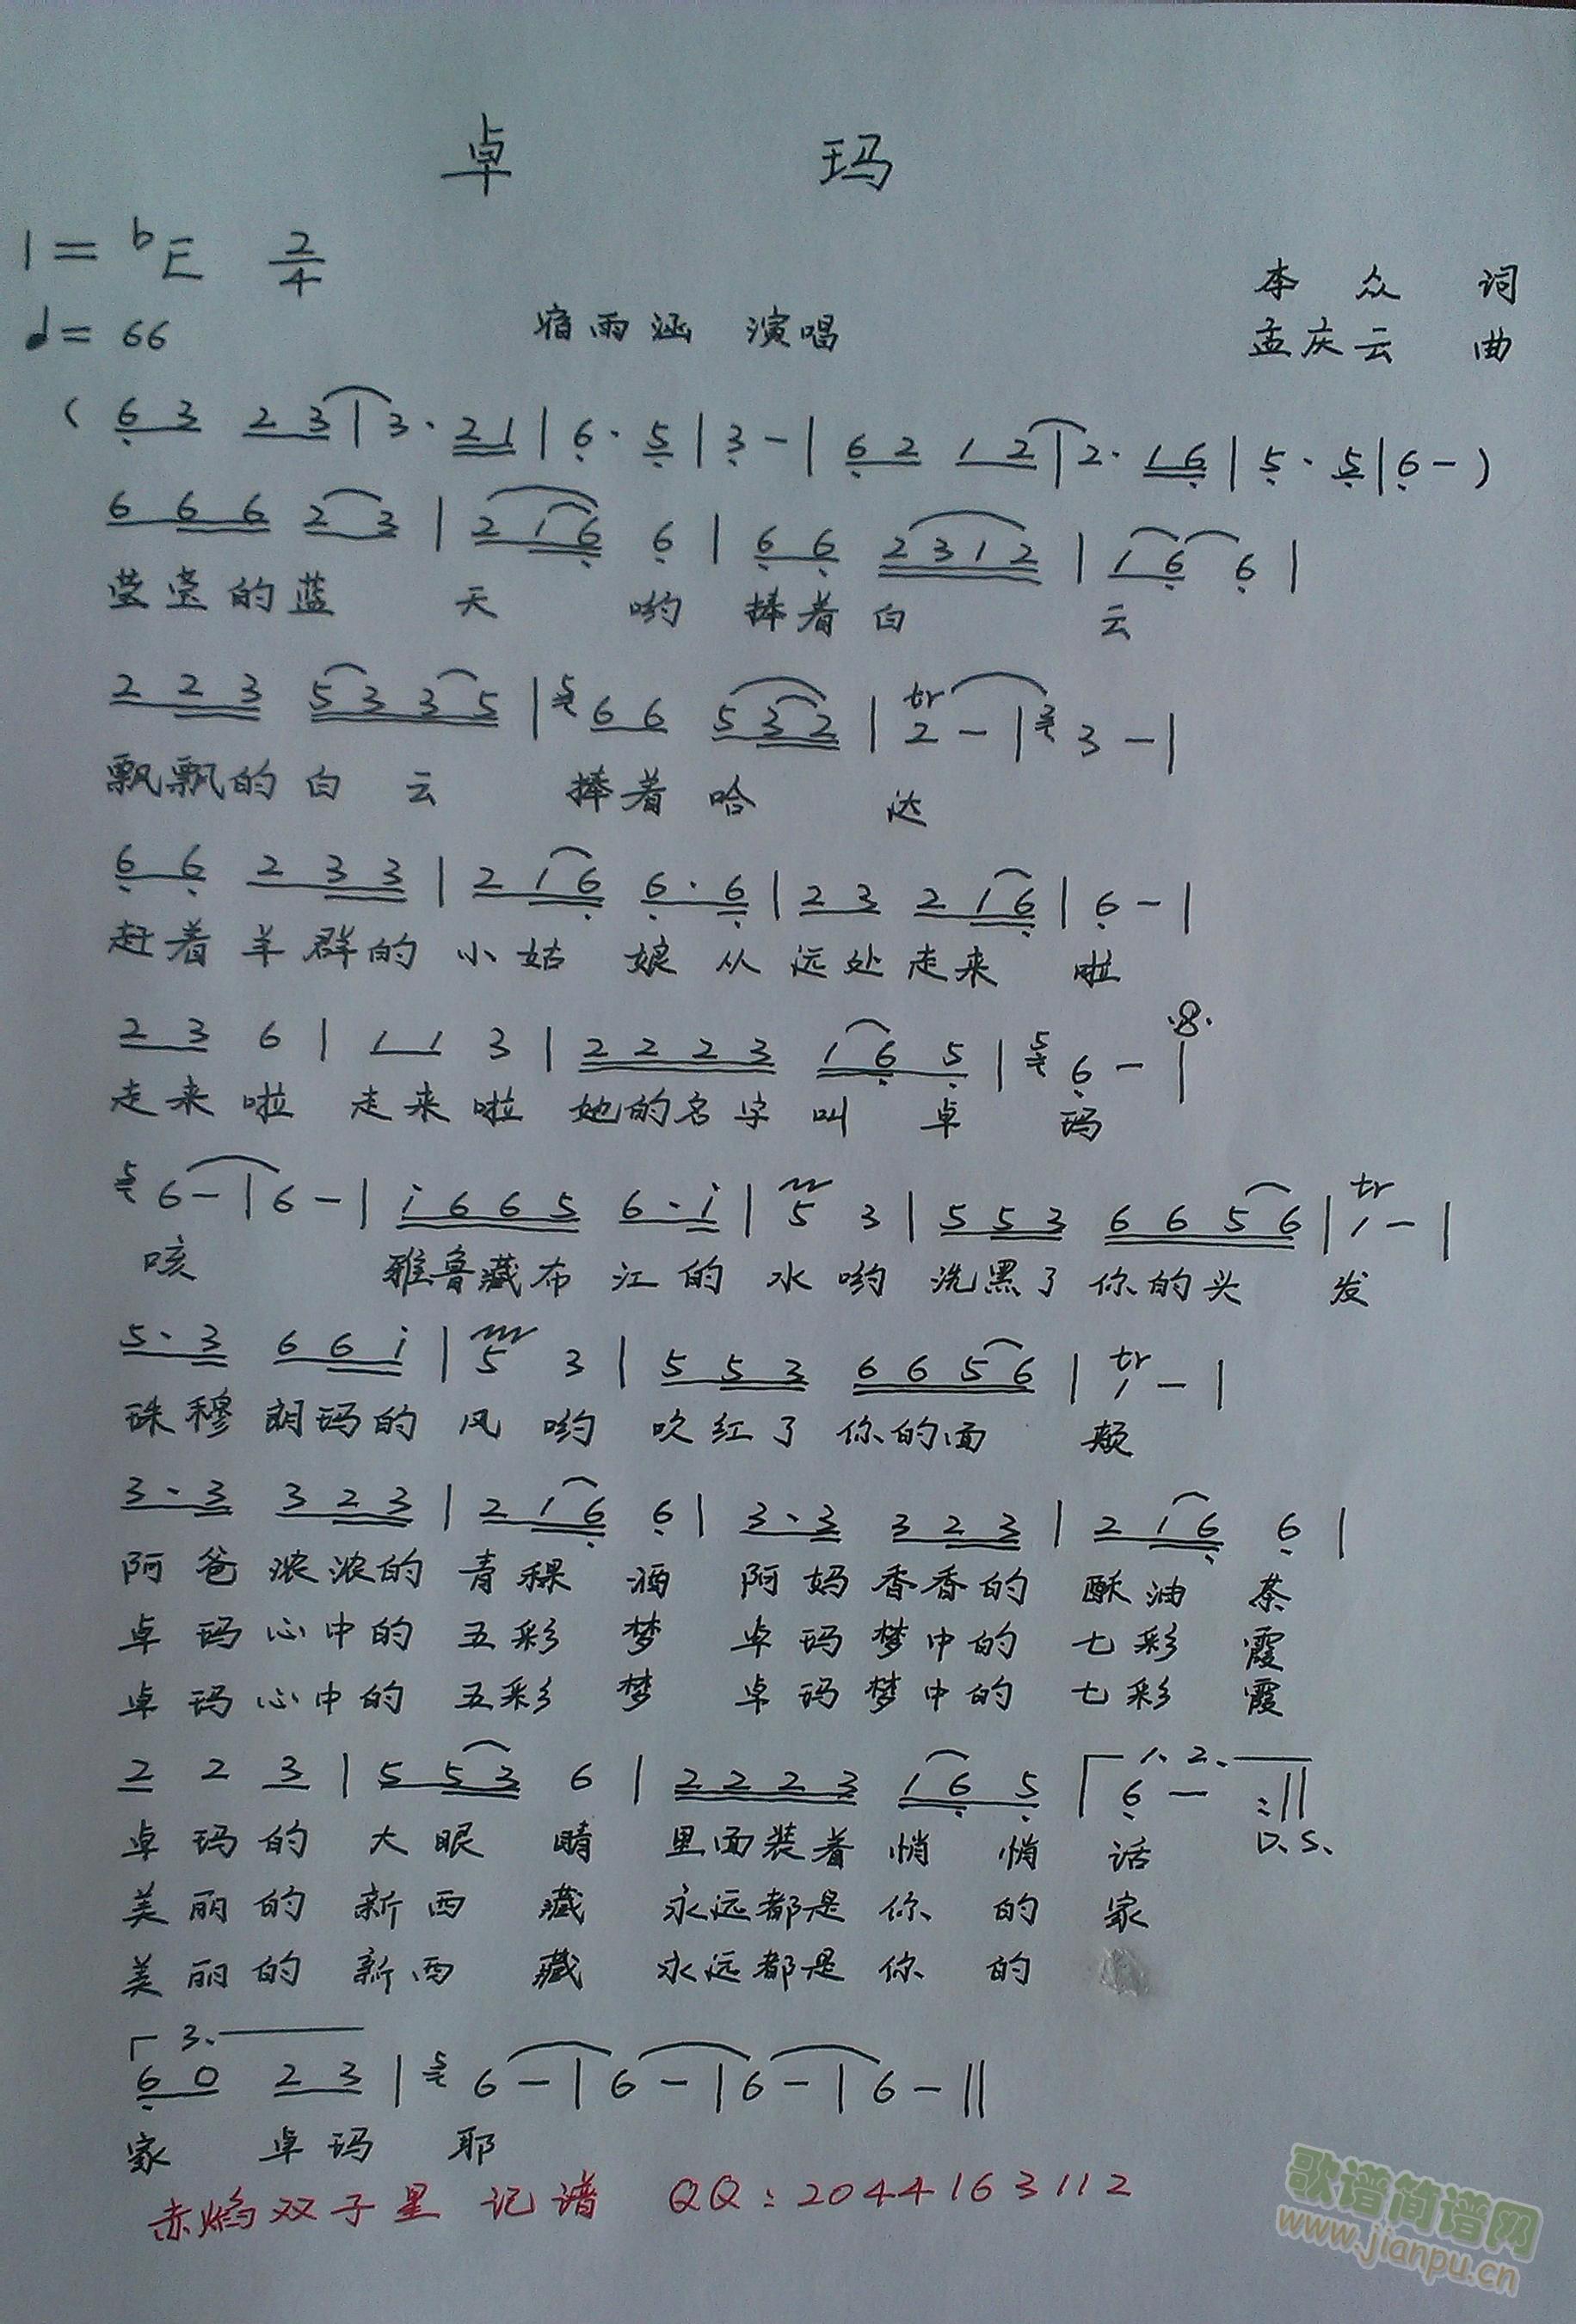 卓 玛
1=bE 2/4
♩=66
宿雨涵 演唱
本众 词
孟庆云 曲
( 6 3 2 3 | 3 · 2 1 | 6 · 5 | 3 - | 6 2 1 2 | 2 · 1 6 | 5 · 5 | 6 - )
6 6 6 2 3 | 2 1 6 6 | 6 6 2 3 1 2 | 1 6 6 |
莹莹的蓝 天 哟 捧着白 云
2 2 3 5 3 3 5 | 5 6 6 5 3 2 | tr 2 - | 2 3 - |
飘飘的白 云 捧着哈 达
6 6 2 3 3 | 2 1 6 6 · 6 | 2 3 2 1 6 | 6 - |
赶着羊群的小姑 娘从远处走来 啦
2 3 6 | 1 1 3 | 2 2 2 3 1 6 5 | 5 6 - |
走来啦 走来啦 她的名字叫 卓 玛
5 6 - | 6 - | i 6 6 5 6 · i | 5 3 | 5 5 3 6 6 5 6 | tr 1 - |
咳 雅鲁藏布江的水哟 洗黑了你的头 发
5 · 3 6 6 i | 5 3 | 5 5 3 6 6 5 6 | tr 1 - |
珠穆朗玛的风哟 吹红了你的面 颊
3 · 3 3 2 3 | 2 1 6 6 | 3 · 3 3 2 3 | 2 1 6 6 |
阿爸浓浓的青稞 酒 阿妈香香的酥油 茶
卓玛心中的五彩 梦 卓玛梦中的七彩 霞
卓玛心中的五彩 梦 卓玛梦中的七彩 霞
2 2 3 | 5 5 3 6 | 2 2 2 3 1 6 5 | 1、2、 6 - :||
卓玛的大眼 睛 里面装着悄 悄 话 D、S、
美丽的新西 藏 永远都是你 的 家
美丽的新西 藏 永远都是你 的
3、
6 0 2 3 | 5 6 - | 6 - | 6 - | 6 - ||
家 卓玛 耶
赤焰双子星 记谱 QQ:2044163112
歌谱简谱网
www.jianpu.cn